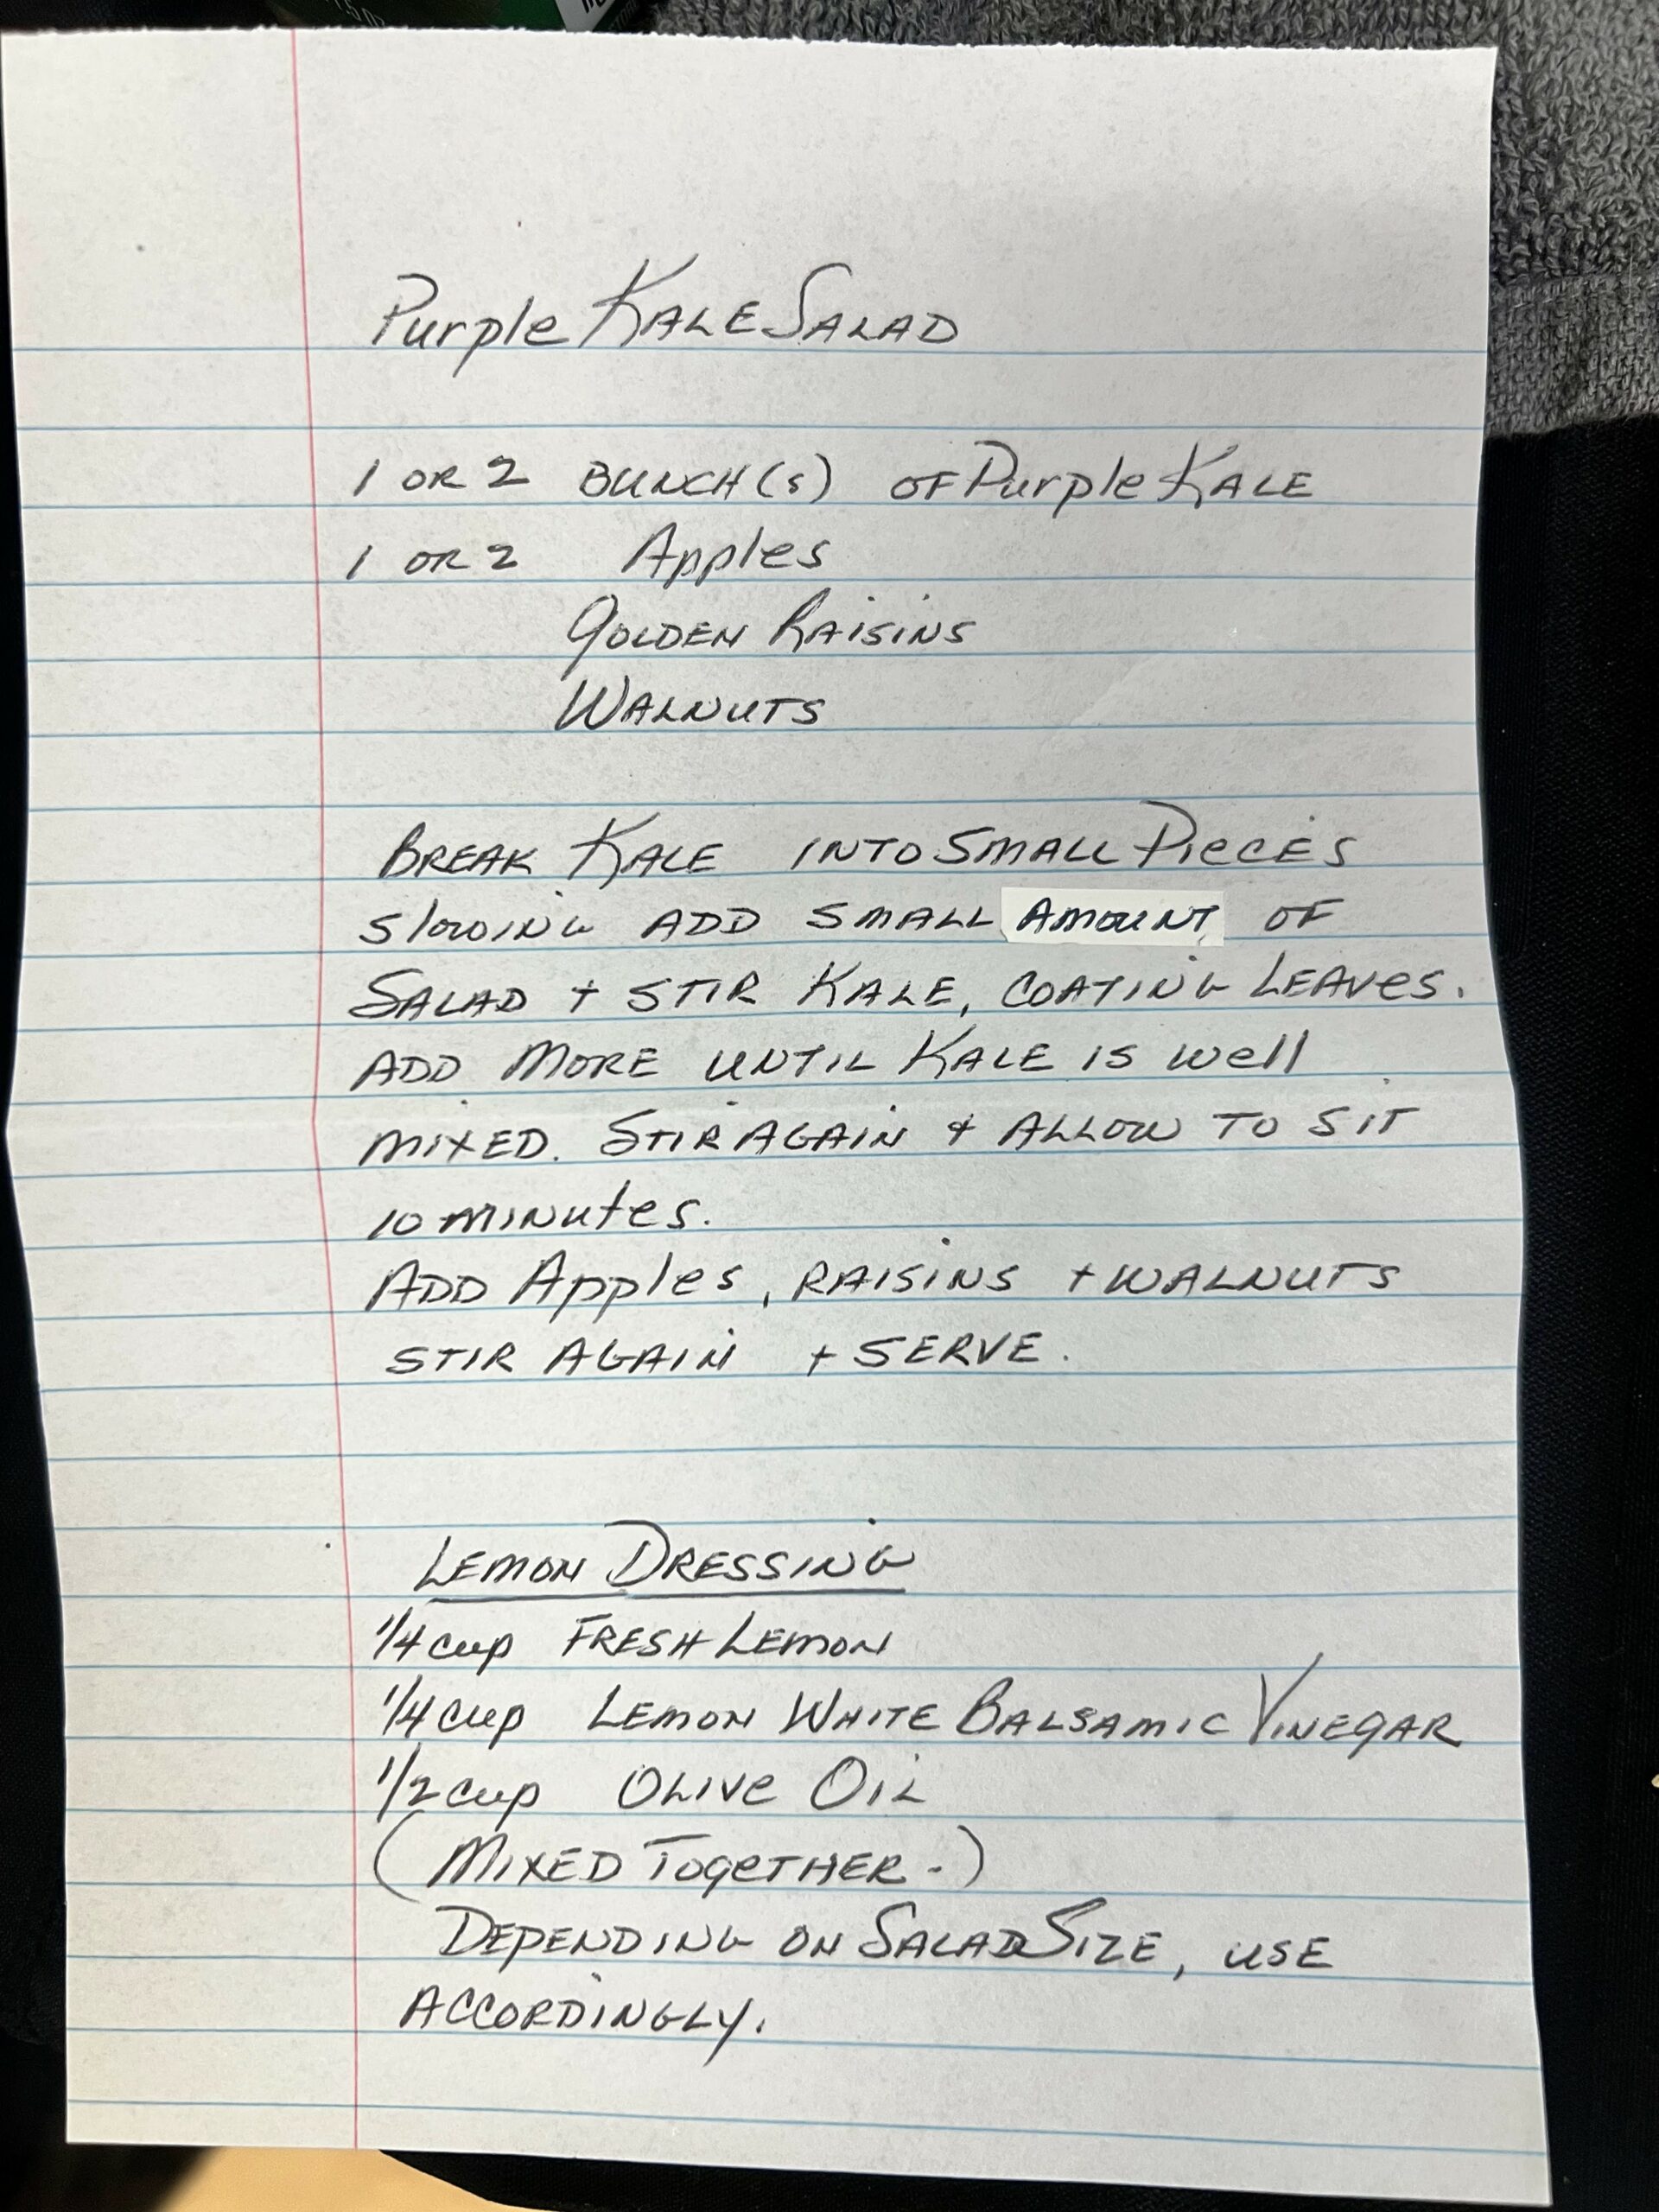 Purple KALE SALAD
1 OR 2 BUNCH(S) OF Purple KALE
1 OR 2 Apples
GOLDEN RAISINS
WALNUTS
BREAK KALE INTO SMALL PIECES
SLOWING ADD SMALL AMOUNT OF
SALAD + STIR KALE, COATING LEAVES.
ADD MORE UNTIL KALE IS WELL
MIXED. STIR AGAIN + ALLOW TO SIT
10 MINUTES.
ADD Apples, RAISINS + WALNUTS
STIR AGAIN + SERVE.
LEMON DRESSING
1/4 cup FRESH LEMON
1/4 cup LEMON WHITE BALSAMIC VINEGAR
1/2 cup OLIVE OIL
(MIXED TOGETHER.)
DEPENDING ON SALAD SIZE, USE
ACCORDINGLY.